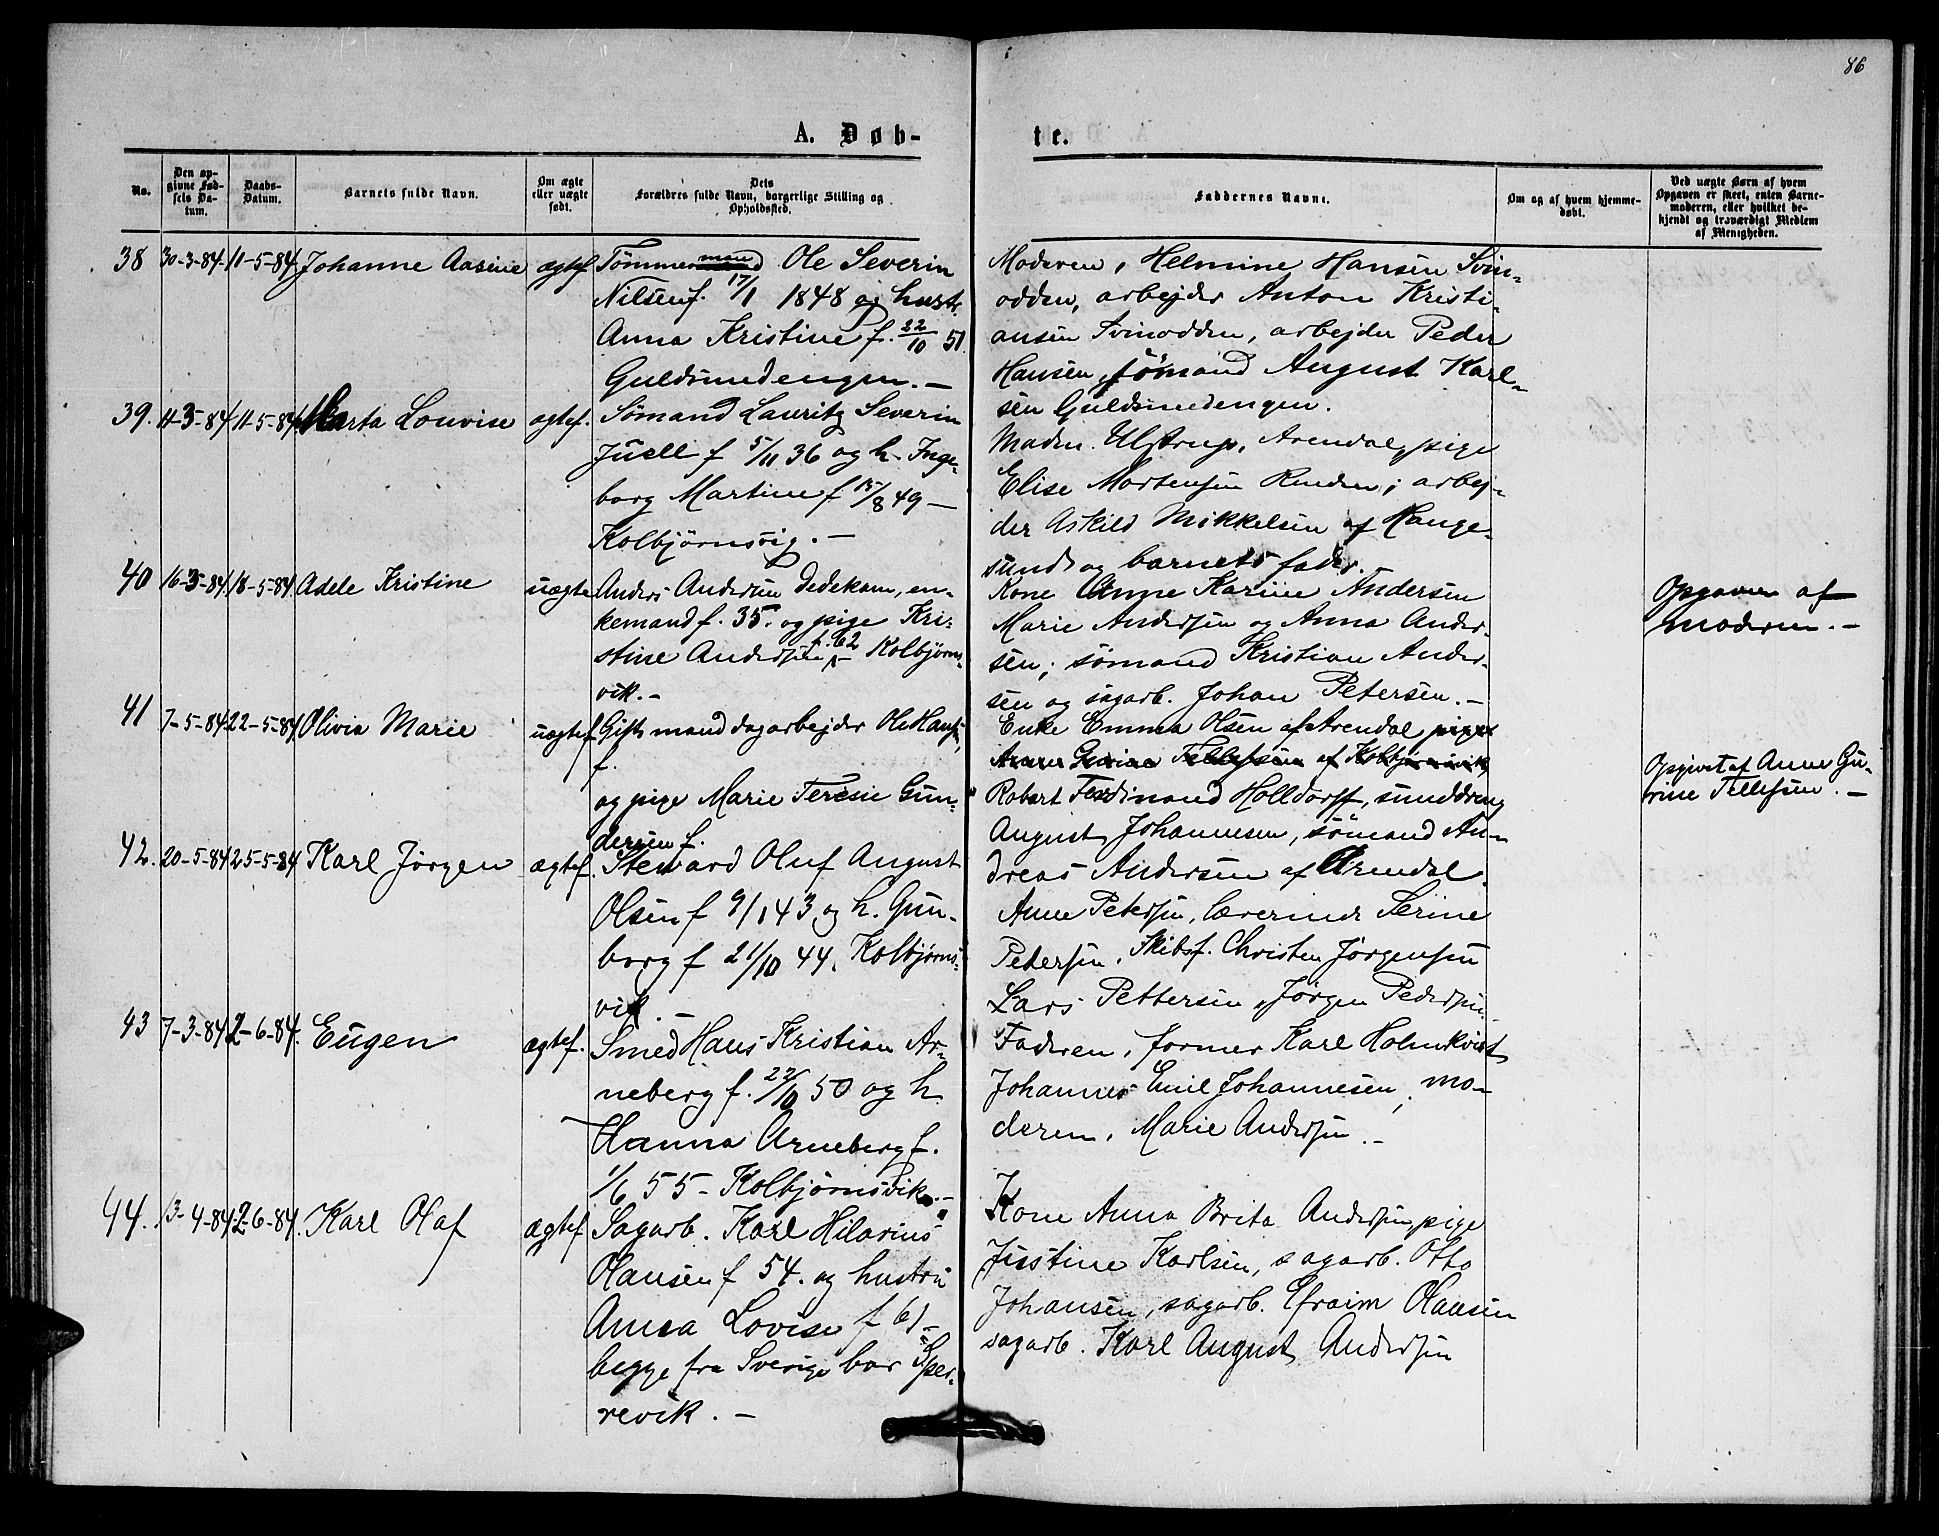 86
A. Døb-
te.
No.
Den op-
givne Fød-
sels Da-
tum.
Daabs-
Datum.
Barnets fulde Navn.
Om ægte
eller uægte
født.
Dets
Forældres fulde Navn, borgerlige Stilling og
Opholdssted.
Faddernes Navne.
Om og af hvem hjemme-
døbt.
Ved uægte Børn af hvem
Opgaven er skeet, enten Barne-
moderen, eller hvilket be-
kjendt og troværdigt Medlem
af Menigheden.
38 30-3-84 11-5-84 Johanne Aasine ægtef. Tømmermand Ole Severin
Nilsen f. 17/1 1848 og hustr.
Anna Kristine f. 22/10 51.
Guldsmedengen. —
Moderen, Helmine Hansen Svin-
odden, arbejder Anton Kristi-
ansen Svinodden, arbejder Peder
Hansen, sømand August Karl-
sen Guldsmedengen.
39. 11-3-84 11-5-84 Marta Louvise ægtef. Sømand Lauritz Severin
Juell f 5/11 36 og h. Inge-
borg Martine f 15/8 49 —
Kolbjørnsvig. —
Madm. Ulstrup, Arendal, pige
Elise Mortensen Rinden; arbej-
der Askild Mikkelsen af Hauge-
sund og barnets fader.
40 16-3-84 18-5-84 Adele Kristine uægte Anders Andersen Dedekam, en-
kemand f. 35. og pige Kri-
stine Andersen f. 62 Kolbjørns-
vik. —
Kone Anne Karine Andersen
Marie Andersen og Anna Ander-
sen; sømand Kristian Ander-
sen og sagarb. Johan Petersen. —
Opgaven af
moderen. —
41 7-5-84 22-5-84 Olivia Marie uægtef Gift mand dagarbejder Ole Hansen,
f.
og pige Marie Teresie Gun-
dersen f.
Enke Emma Olsen af Arendal pige
Anne Gurine Tellefsen af Kolbjørnsvik
Robert Ferdinand Holldorff, sunddreng
August Johannesen, sømand An-
dreas Andersen af Arendal.
Opgivet af Anne Gu-
rine Tellefsen. —
42. 20-5-84 25-5-84 Karl Jørgen ægtef. Steward Oluf August
Olsen f 9/1 43 og h. Gun-
borg f 21/10 44. Kolbjørns-
vik. —
Anne Petersen, lærerinde Serine
Petersen, Skibsf. Christen Jørgensen
Lars Pettersen, Jørgen Pedersen.
43 7-3-84 2-6-84. Eugen ægtef. Smed Hans Kristian Ar-
neberg f. 22/10 50 og h.
Hanna Arneberg f.
1/6 55 - Kolbjørnsvik. —
Faderen, former Karl Holmkvist
Johannes Emil Johannesen, mo-
deren, Marie Andersen. —
44. 13-4-84 2-6-84. Karl Olaf ægtef Sagarb. Karl Hilarius
Olausen f 54. og hustru
Anna Lovise f 61 —
begge fra Sverige bor Sper-
revik. —
Kone Anna Brita Andersen, pige
Justine Karlsen, sagarb. Otto
Johansen, sagarb. Efraim Olausen
sagarb. Karl August Andersen